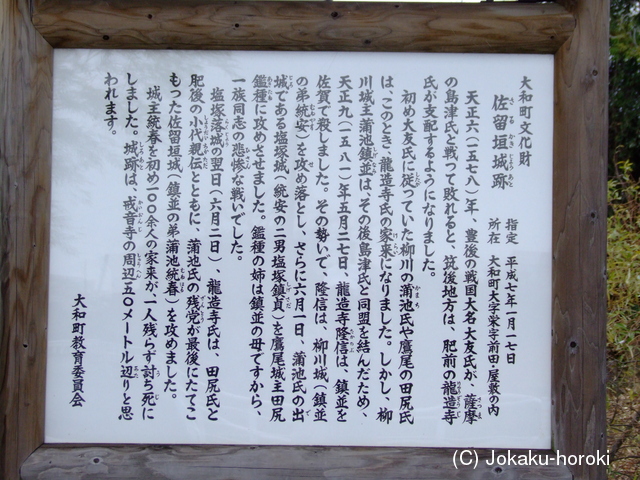 大和町文化財
佐留垣城跡
指定 平成七年一月一七日
所在 大和町大字栄字前田・屋敷の内
天正六(一五七八)年、豊後の戦国大名大友氏が、薩摩
の島津氏と戦って敗れると、筑後地方は、肥前の龍造寺
氏が支配するようになりました。
初め大友氏に従っていた柳川の蒲池氏や鷹尾の田尻氏
は、このとき、龍造寺氏の家来になりました。しかし、柳
川城主蒲池鎮並は、その後島津氏と同盟を結んだため、
天正九(一五八一)年五月二七日、龍造寺隆信は、鎮並を
佐賀で殺しました。その勢いで、隆信は、柳川城(鎮並
の弟統安)を攻め落とし、さらに六月一日、蒲池氏の出
城である塩塚城(統安の二男塩塚鎮貞)を鷹尾城主田尻
鑑種に攻めさせました。鑑種の姉は鎮並の母ですから、
一族同志の悲惨な戦いでした。
塩塚落城の翌日(六月二日)、龍造寺氏は、田尻氏と
肥後の小代親伝とともに、蒲池氏の残党が最後にたてこ
もった佐留垣城(鎮並の弟蒲池統春)を攻めました。
城主統春を初め一〇〇余人の家来が一人残らず討ち死に
しました。城跡は、戒音寺の周辺五〇メートル辺りと思
われます。
大和町教育委員会
(C) Jokaku-horoki